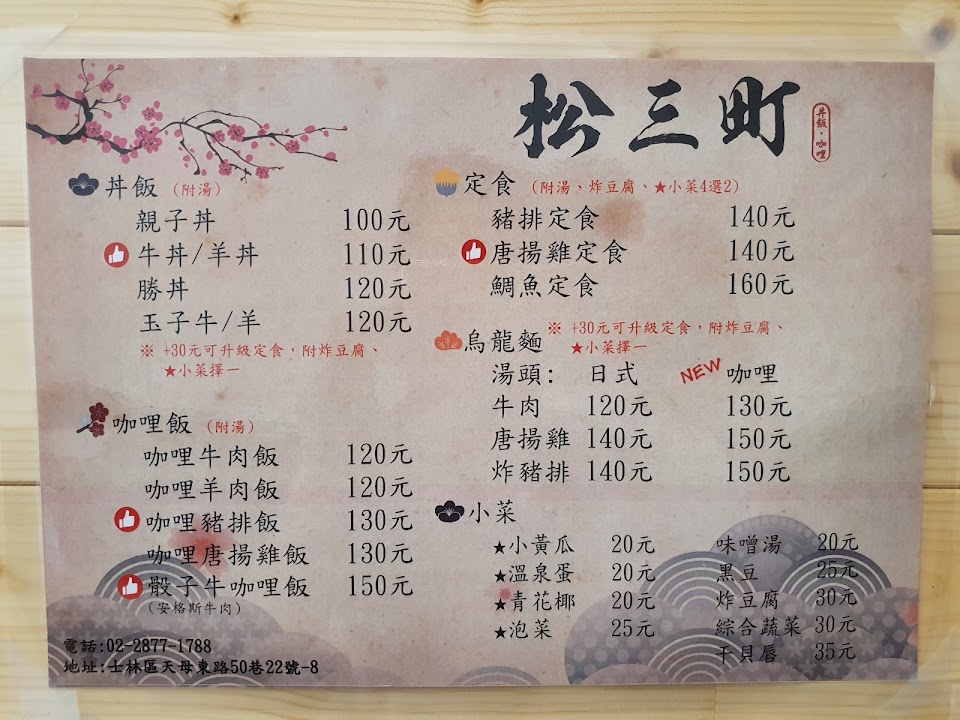 松三町
丼飯・咖哩
丼飯 (附湯)
親子丼 100元
牛丼/羊丼 110元
勝丼 120元
玉子牛/羊 120元
※ +30元可升級定食,附炸豆腐、
★小菜擇一
咖哩飯 (附湯)
咖哩牛肉飯 120元
咖哩羊肉飯 120元
咖哩豬排飯 130元
咖哩唐揚雞飯 130元
骰子牛咖哩飯 150元
(安格斯牛肉)
電話:02-2877-1788
地址:士林區天母東路50巷22號-8
定食 (附湯、炸豆腐、★小菜4選2)
豬排定食 140元
唐揚雞定食 140元
鯛魚定食 160元
烏龍麵 ※ +30元可升級定食,附炸豆腐、
★小菜擇一
湯頭: 日式 NEW 咖哩
牛肉 120元 130元
唐揚雞 140元 150元
炸豬排 140元 150元
小菜
★小黃瓜 20元 味噌湯 20元
★溫泉蛋 20元 黑豆 25元
★青花椰 20元 炸豆腐 30元
★泡菜 25元 綜合蔬菜 30元
干貝唇 35元